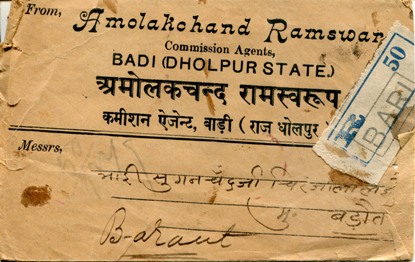 From,
Amolakohand Ramswar
Commission Agents,
BADI (DHOLPUR STATE.)
अमोलकचन्द रामस्वरूप
कमीशन ऐजेन्ट, वाड़ी ( राज धोलपुर
R 50
BAR
Messrs,
भाई सुगनचँदजी
मु॰ बड़ौत
Baraut